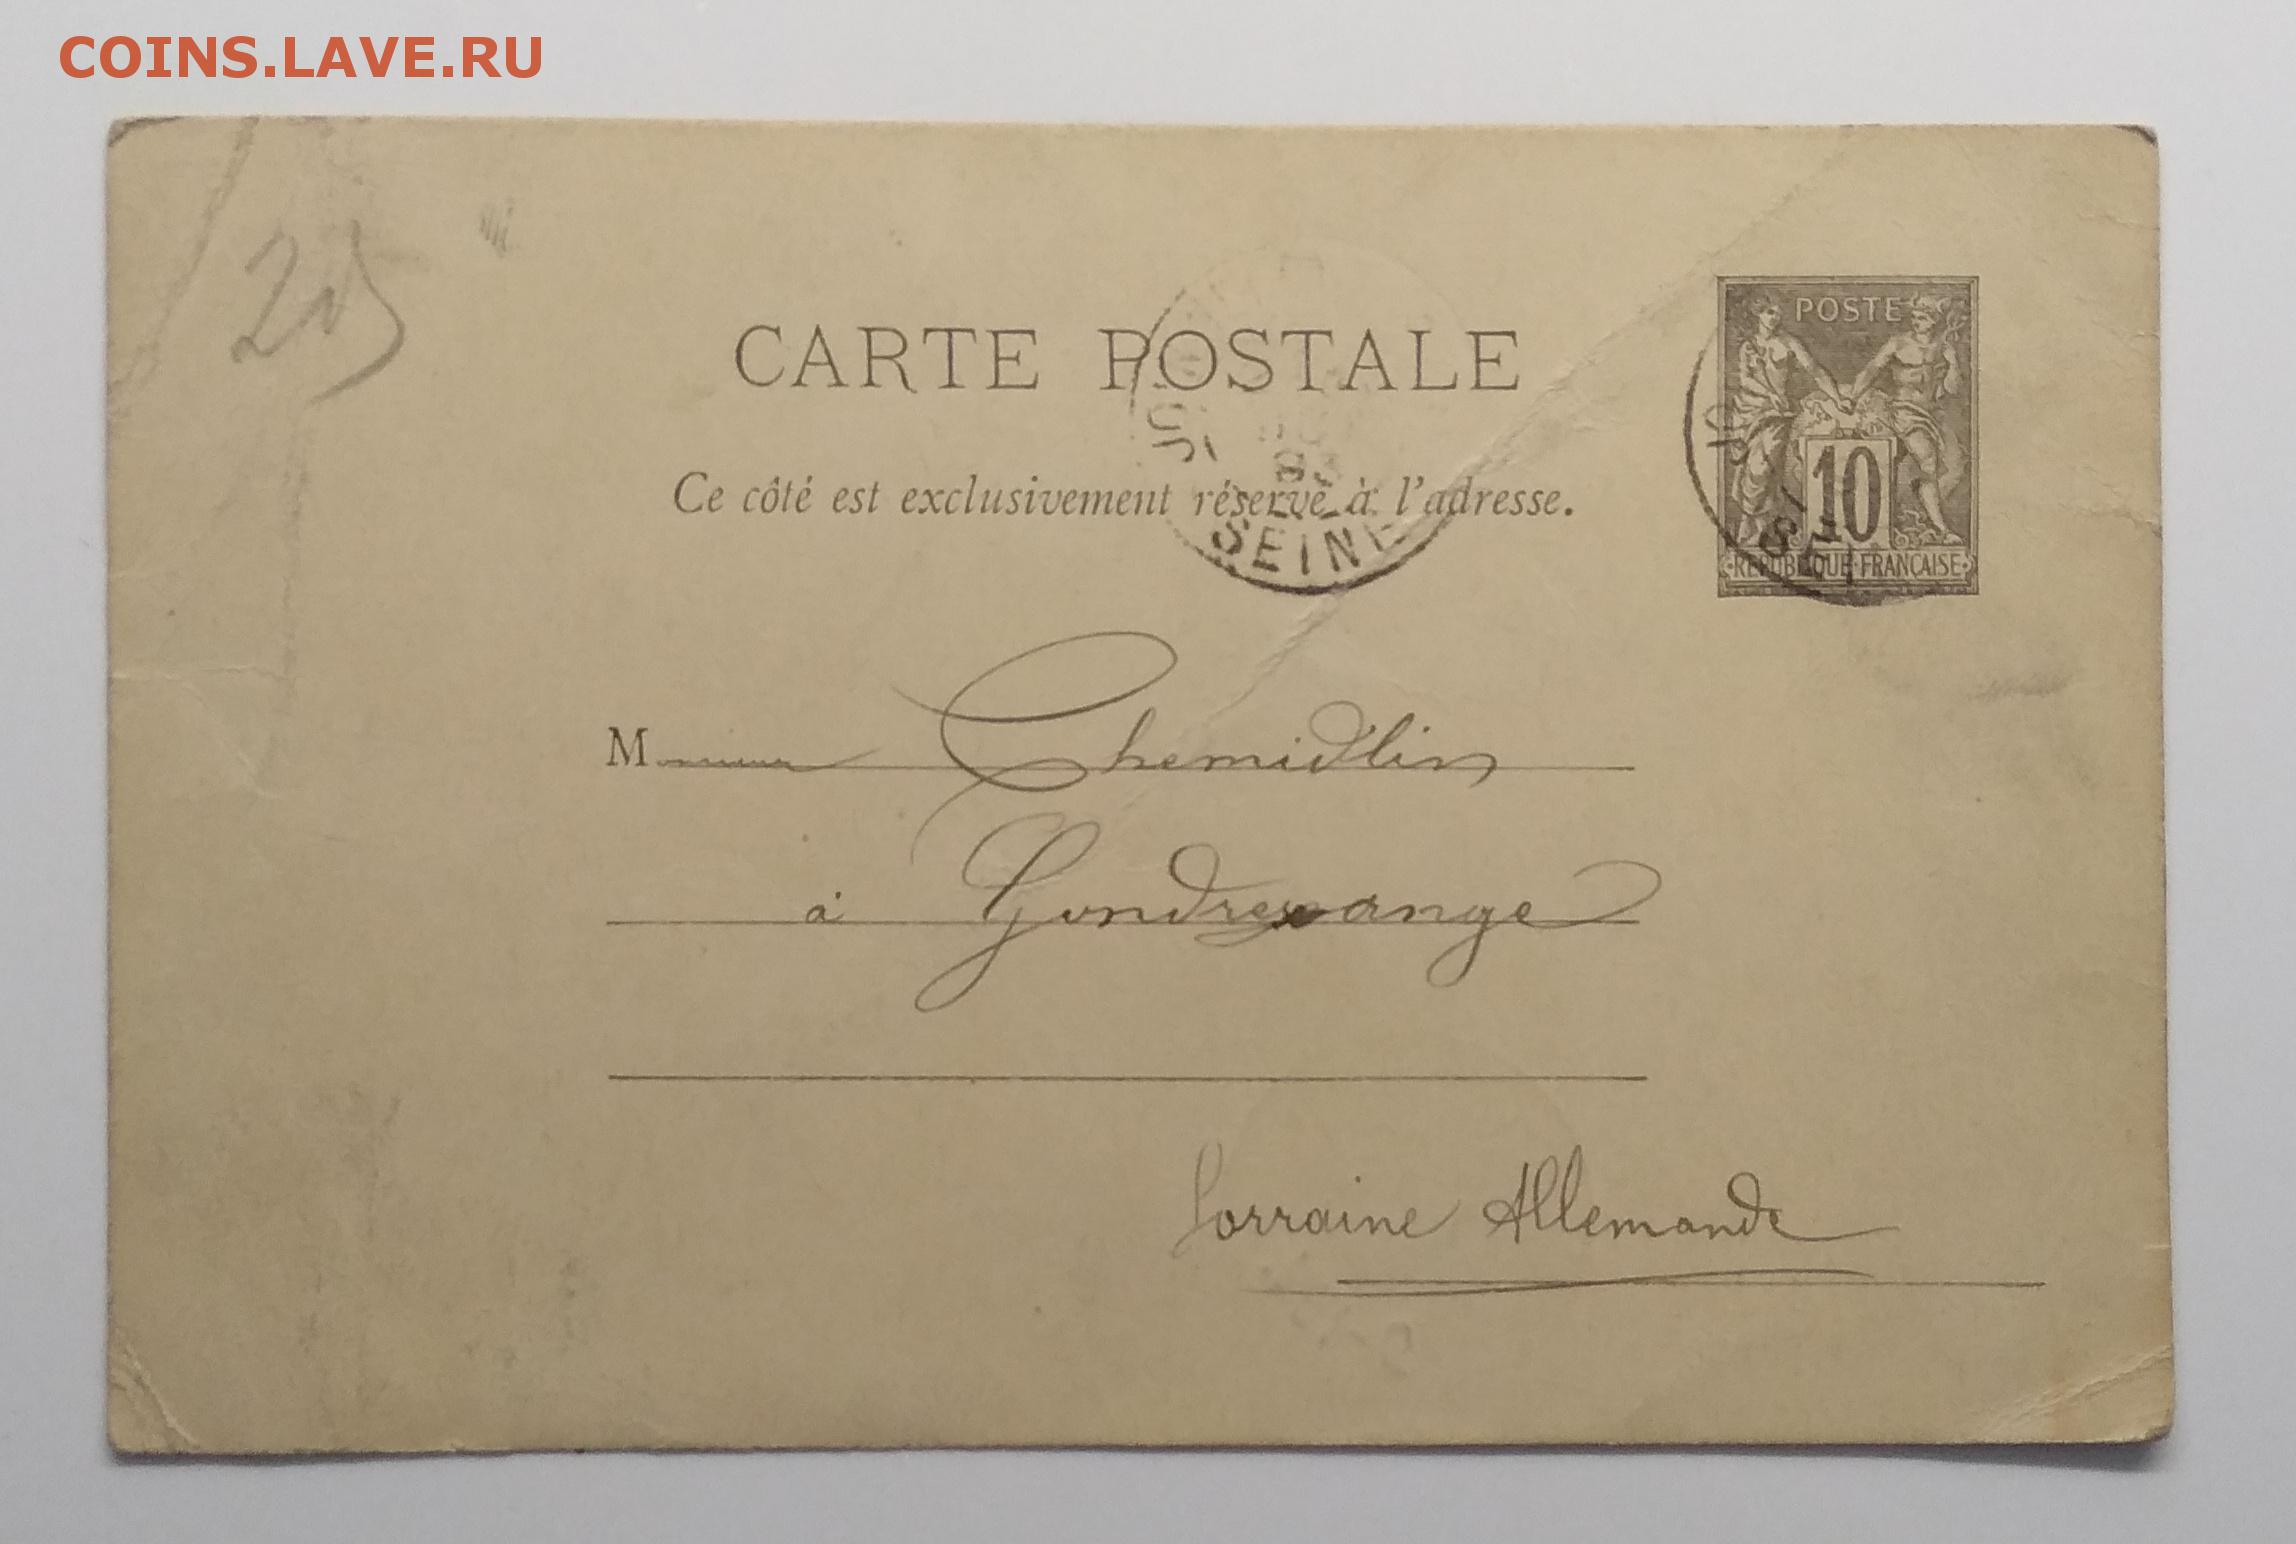 COINS.LAVE.RU
CARTE POSTALE
Ce côté est exclusivement réservé à l'adresse.
SEINE
POSTE
10
REPUBLIQUE FRANÇAISE
Monsieur Chemidlin
à Gondrexange
Lorraine Allemande